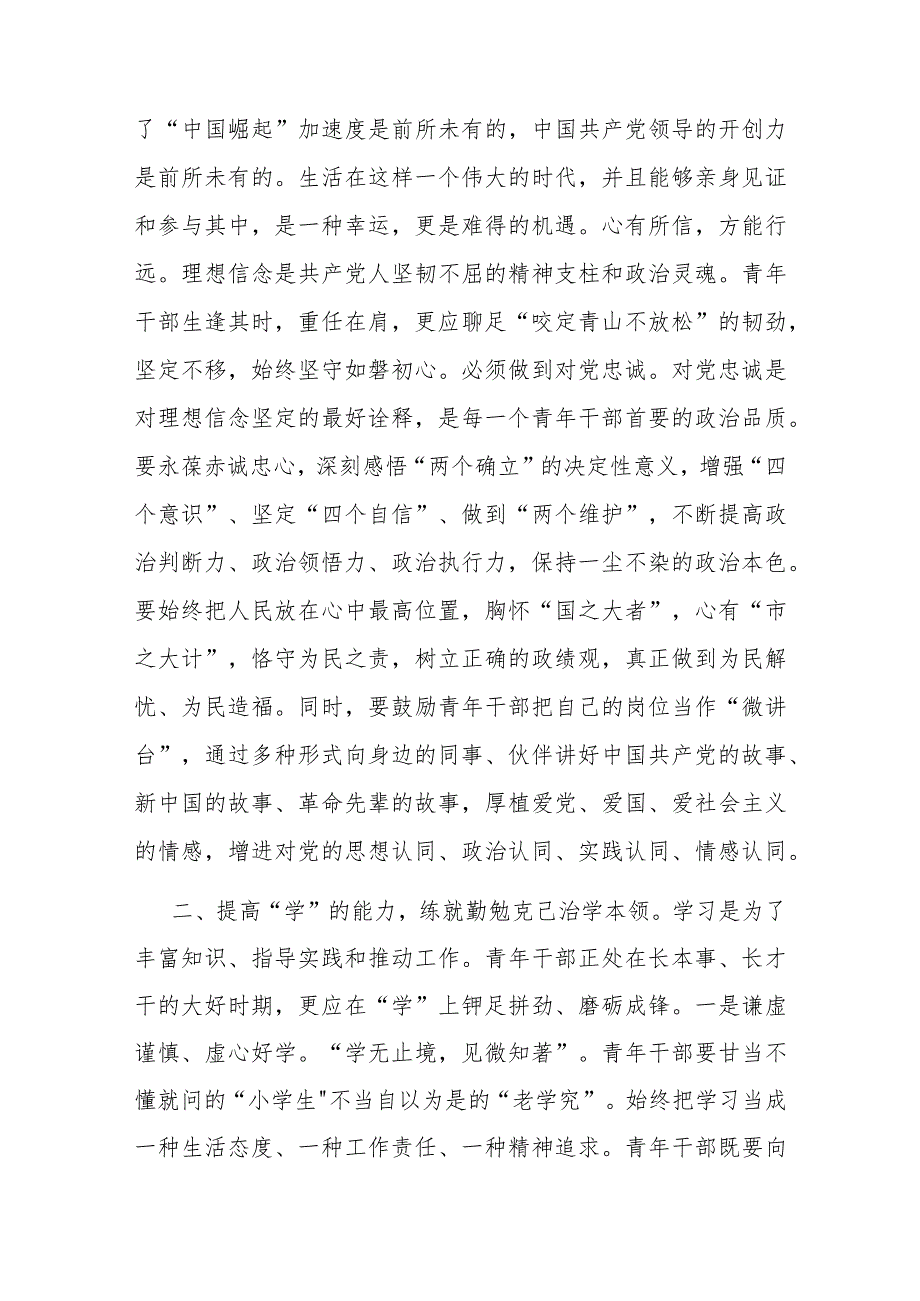 了“中国崛起”加速度是前所未有的，中国共产党领导的开创力
是前所未有的。生活在这样一个伟大的时代，并且能够亲身见证
和参与其中，是一种幸运，更是难得的机遇。心有所信，方能行
远。理想信念是共产党人坚韧不屈的精神支柱和政治灵魂。青年
干部生逢其时，重任在肩，更应聊足“咬定青山不放松”的韧劲，
坚定不移，始终坚守如磐初心。必须做到对党忠诚。对党忠诚是
对理想信念坚定的最好诠释，是每一个青年干部首要的政治品质。
要永葆赤诚忠心，深刻感悟“两个确立”的决定性意义，增强“四
个意识”、坚定“四个自信”、做到“两个维护”，不断提高政
治判断力、政治领悟力、政治执行力，保持一尘不染的政治本色。
要始终把人民放在心中最高位置，胸怀“国之大者”，心有“市
之大计”，恪守为民之责，树立正确的政绩观，真正做到为民解
忧、为民造福。同时，要鼓励青年干部把自己的岗位当作“微讲
台”，通过多种形式向身边的同事、伙伴讲好中国共产党的故事、
新中国的故事、革命先辈的故事，厚植爱党、爱国、爱社会主义
的情感，增进对党的思想认同、政治认同、实践认同、情感认同。
二、提高“学”的能力，练就勤勉克己治学本领。学习是为了
丰富知识、指导实践和推动工作。青年干部正处在长本事、长才
干的大好时期，更应在“学”上钾足拼劲、磨砺成锋。一是谦虚
谨慎、虚心好学。“学无止境，见微知著”。青年干部要甘当不
懂就问的“小学生"不当自以为是的“老学究”。始终把学习当成
一种生活态度、一种工作责任、一种精神追求。青年干部既要向